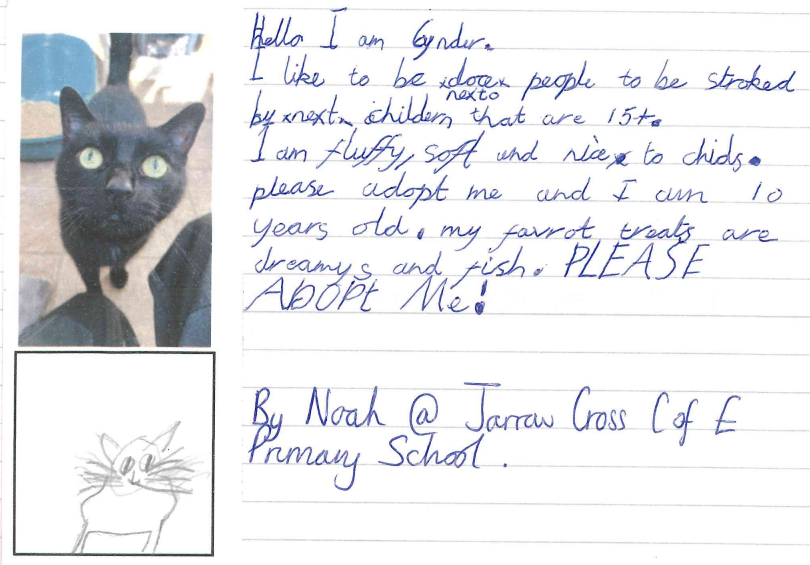 Hello I am Cynder.
I like to be xdorex people to be stroked
nexto
by xnextx childern that are 15+.
I am fluffy, soft and nice to chids.
please adopt me and I am 10
years old. my favrot treats are
dreamys and fish. PLEASE
ADOPt Me!
By Noah @ Jarrow Cross C of E
Primary School.